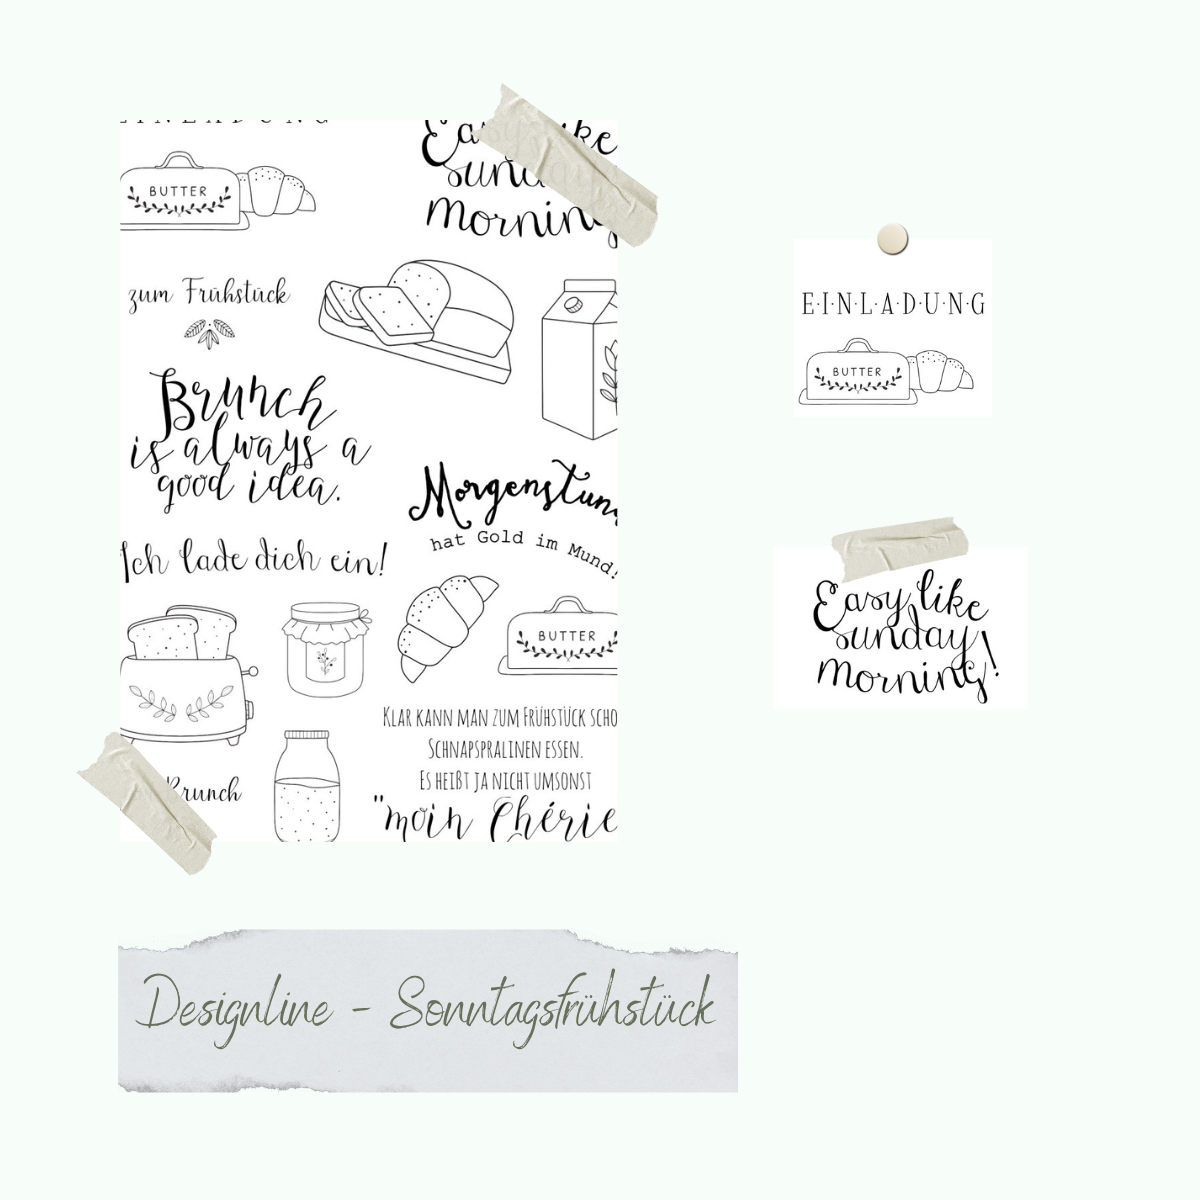 EINLADUNG
Easy like
sunday
morning
BUTTER
zum Frühstück
Brunch
is always a
good idea.
Morgenstun
hat Gold im Mund!
Ich lade dich ein!
BUTTER
KLAR KANN MAN ZUM FRÜHSTÜCK SCHO
SCHNAPSPRALINEN ESSEN.
ES HEIßT JA NICHT UMSONST
"mon Chérie
Brunch
E·I·N·L·A·D·U·N·G
BUTTER
Easy like
sunday
morning!
Designline - Sonntagsfrühstück